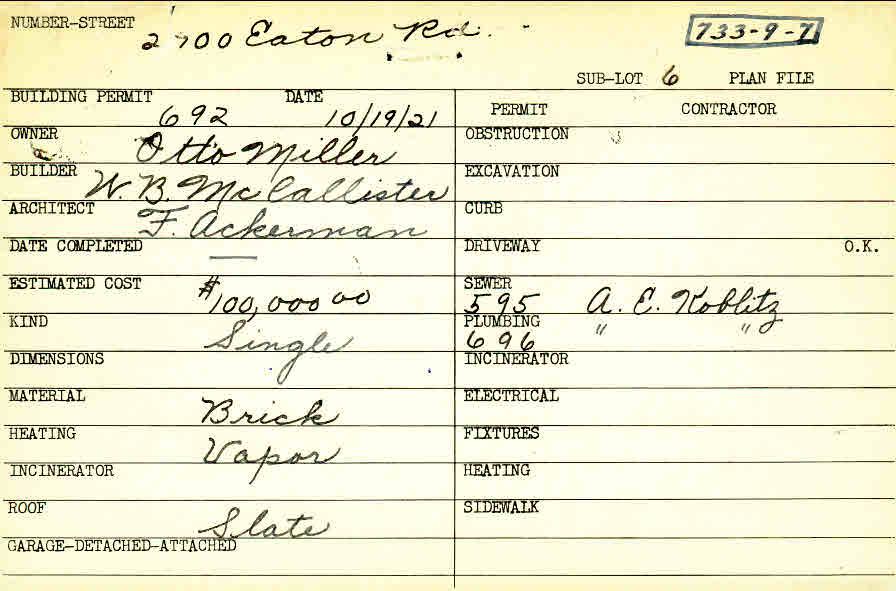 NUMBER-STREET 2700 Eaton Rd. 733-9-7
SUB-LOT 6 PLAN FILE
BUILDING PERMIT DATE
692 10/19/21
OWNER Otto Miller
BUILDER W. B. McCallister
ARCHITECT F. Ackerman
DATE COMPLETED —
ESTIMATED COST $100,000 00
KIND Single
DIMENSIONS
MATERIAL Brick
HEATING Vapor
INCINERATOR
ROOF Slate
GARAGE-DETACHED-ATTACHED
PERMIT CONTRACTOR
OBSTRUCTION
EXCAVATION
CURB
DRIVEWAY O.K.
SEWER
595 A. E. Koblitz
PLUMBING
696 " "
INCINERATOR
ELECTRICAL
FIXTURES
HEATING
SIDEWALK